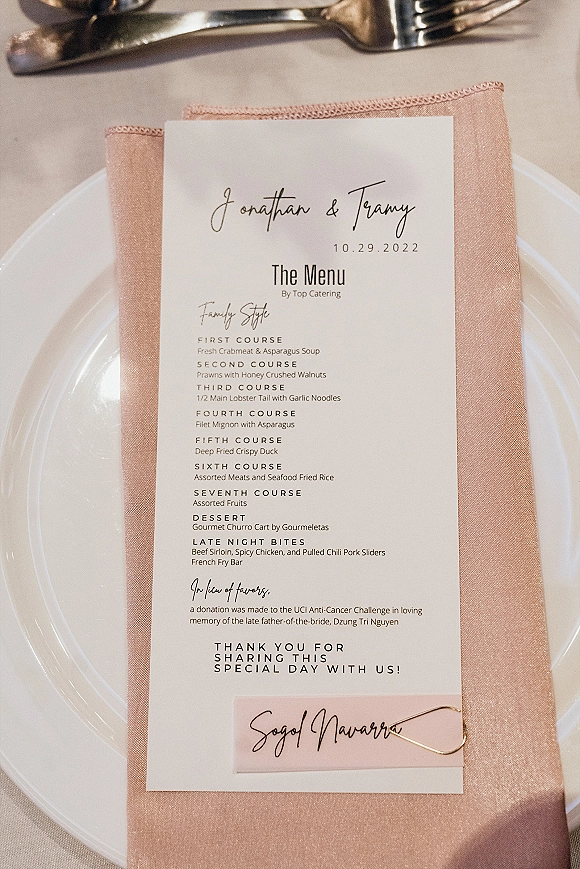 Jonathan & Tramy
10.29.2022
The Menu
By Top Catering
Family Style
FIRST COURSE
Fresh Crabmeat & Asparagus Soup
SECOND COURSE
Prawns with Honey Crushed Walnuts
THIRD COURSE
1/2 Main Lobster Tail with Garlic Noodles
FOURTH COURSE
Filet Mignon with Asparagus
FIFTH COURSE
Deep Fried Crispy Duck
SIXTH COURSE
Assorted Meats and Seafood Fried Rice
SEVENTH COURSE
Assorted Fruits
DESSERT
Gourmet Churro Cart by Gourmeletas
LATE NIGHT BITES
Beef Sirloin, Spicy Chicken, and Pulled Chili Pork Sliders
French Fry Bar
In lieu of favors,
a donation was made to the UCI Anti-Cancer Challenge in loving
memory of the late father-of-the-bride, Dzung Tri Nguyen
THANK YOU FOR
SHARING THIS
SPECIAL DAY WITH US!
Sogol Navarra